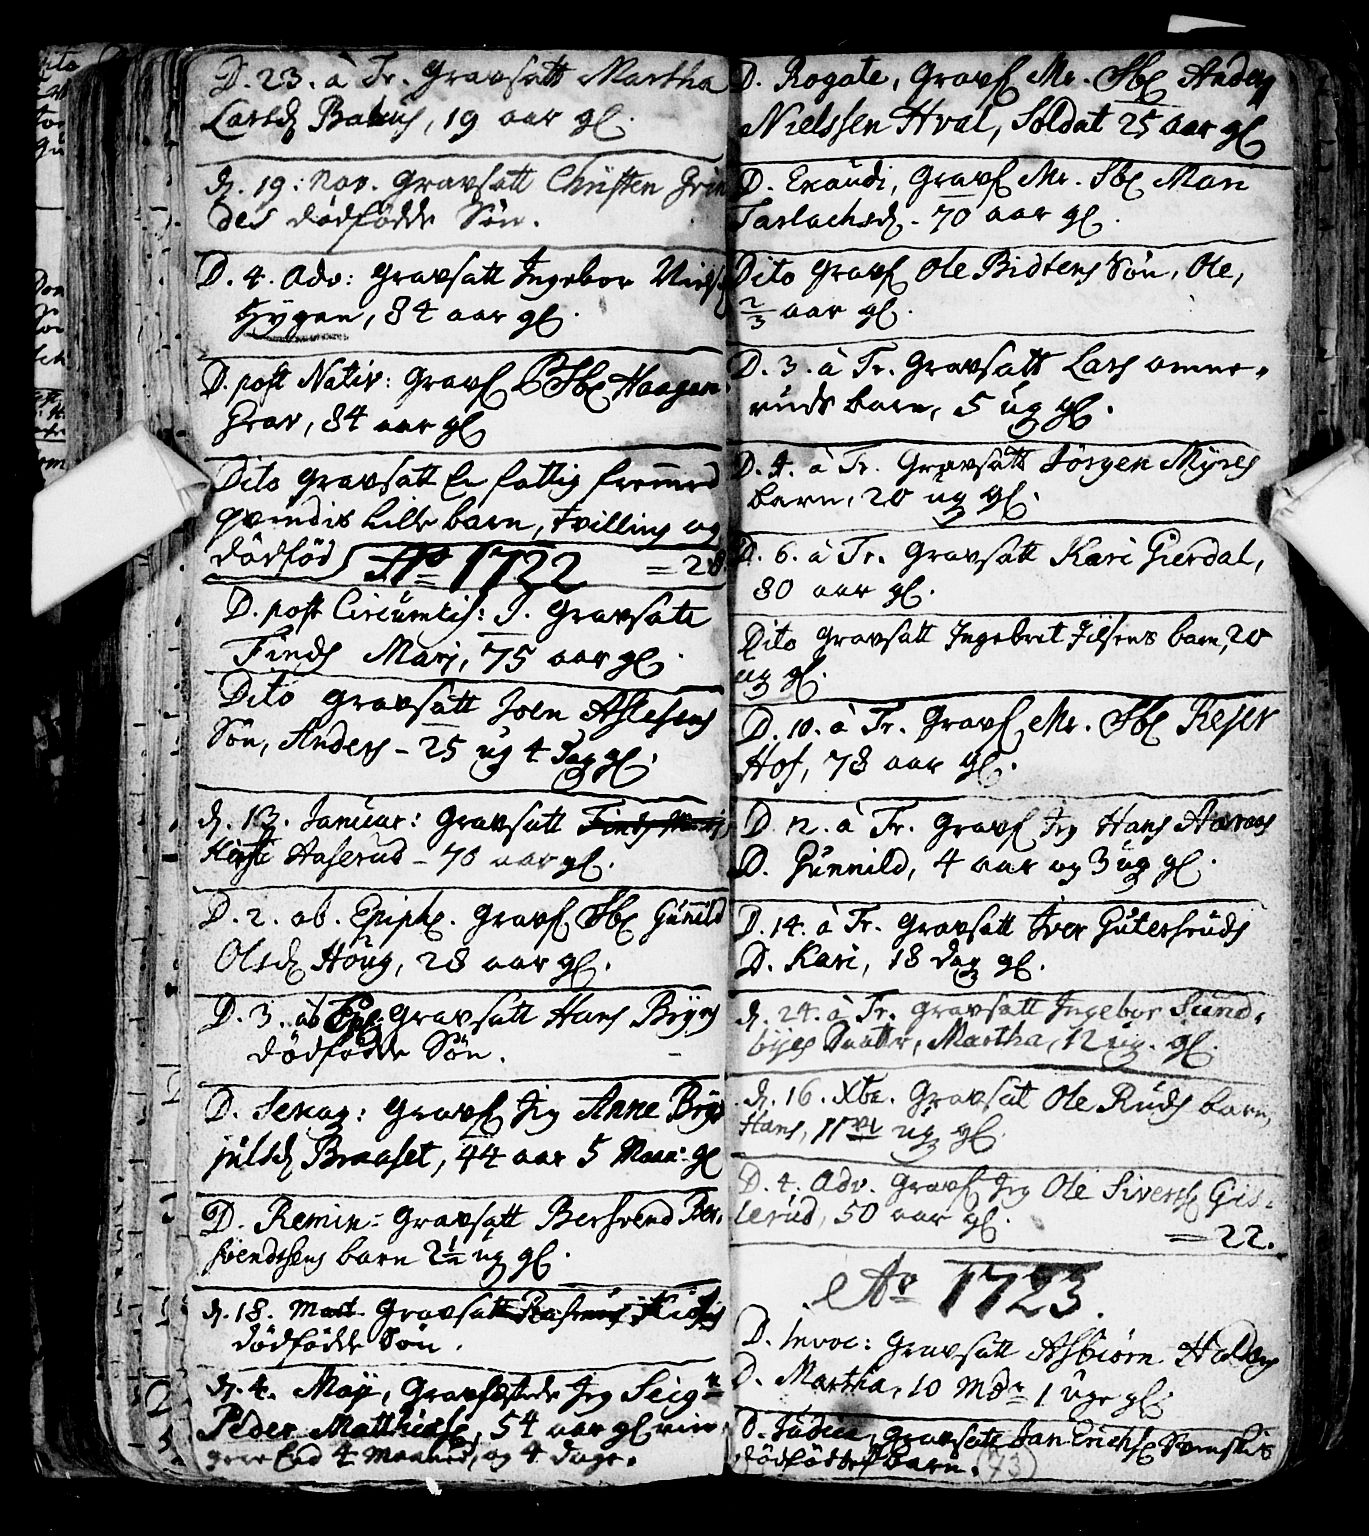 D. 23. à Tr. Gravsatt Martha
Larsd Bahus, 19 aar gl.
d. 19. Nov. Gravsatt Christen Grin
des dödfödde Sön.
D. 4. Adv: Gravsatt Ingebor Niels
Hygen, 84 aar gl.
D. post Nativ: Gravs Sbl Haagen
Grav, 84 aar gl
Dito Gravsatt En fattig fremmed
qvindis lille barn, tvilling og
dödföd
Ao 1722 = 28
D. post Circumcis: J. Gravsatt
Finds Mari, 75 aar gl.
Dito gravsatt Joen Aslesens
Sön, Anders - 25 ug 4 Dag gl.
d. 13. Januar: Gravsatt
Kersti Haserud - 70 aar gl.
D. 2. ab. Epiph. Gravs Sbl Gunild
Olsd Houg, 28 aar gl.
D. 3. ab Epi Gravsatt Hans Bryns
dödfödde Sön.
D. Sexag: Gravs Jeg Anne Bryn
julsd Braaset, 44 aar 5 Maan: gl
D. Remin: Gravsatt Bersvend Ber,
svendsens barn 2½ ug gl.
d. 18. Mart. Gravsatt
dödfödde Sön.
d. 4. Maji, Gravfæstede Jeg Seigr
Peder Matthias, 54 aar gl min,
gere End 4 Maaned, og 4 dage.
D. Rogate, Gravs Mr. Sbl Anders
Nielssen Hval, Soldat 25 aar gl
D. Exaudi, Gravs Mr. Sbl Mari
Taslachsd. 70 aar gl.
Dito Gravs Ole Bidtens Sön, Ole,
2/3 aar gl.
D. 3. à Tr. Gravsatt Lars omme,
ruds barn, 5 ug gl.
D. 4. à Tr. Gravsatt Jörgen Myres
barn, 20 ug gl.
D. 6. à Tr. Gravsatt Kari Gierdal,
80 aar gl.
Dito Gravsatt Ingebret Jilsens barn, 20
ug gl.
D. 10. à Tr. Gravs Mr. Sbl Rejer
Hof, 78 aar gl.
D. 12. à Tr. Gravs Jeg Hans Aaraas
D. Gunnild, 4 aar og 3 ug gl.
D. 14. à Tr. Gravsatt Iver Gutersruds
D. Kari, 18 dag gl.
d. 24. à Tr. Gravsatt Ingebor Sund,
byes Daatter, Martha, 12 ug. gl.
d. 16. Xbr. Gravsat Ole Ruds barn,
Hans, 11 ug gl.
D. 4. Adv. Gravs Jeg Ole Siversl Gis-
lerud, 50 aar gl.
= 22.
Ao 1723.
D. Invoc: Gravsatt Asbiörn Haldens
D. Martha, 10 Mdr 1 uge gl.
D. Judica, Gravsatt Jan Erichs Svenskes
dödfödde barn. (73)